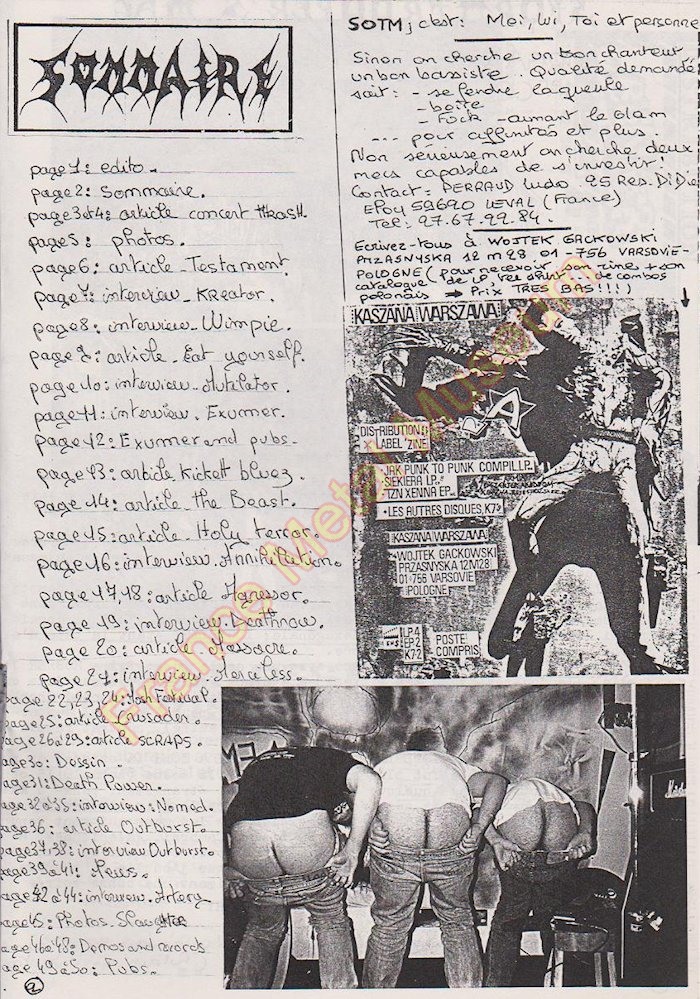 SOMMAIRE
page 1: edito.
page 2: sommaire.
page 3 et 4: article concert thrash.
page 5: photos.
page 6: article Testament.
page 7: interview Kreator.
page 8: interview Wimpie.
page 9: article Eat yourself.
page 10: interview Mutilator.
page 11: interview Exumer.
page 12: Exumer and pubs.
page 13: article Kickett bluez.
page 14: article the Beast.
page 15: article Holy terror.
page 16: interview Annihilation.
page 17,18: article Agressor.
page 19: interview Deathrow.
page 20: article Massacre.
page 21: interview Merciless.
page 22,23,24:
page 25: article Crusader.
page 26 à 29: article SCRAPS.
page 30: Dessin.
page 31: Death Power.
page 32 à 35: interview: Nomed.
page 36: article Outburst.
page 37,38: interview Outburst.
page 39 à 41: News.
page 42 à 44: interview. Artery
page 45: Photos. Slaughter
page 46 à 48: Demos and records
page 49 à 50: Pubs.
2
SOTM; c'est: Mei, Wi, Toi et personne
Sinon on cherche un bon chanteur,
un bon bassiste. Qualité demandée
soit: - se fendre la gueule
- boire
- Fuck - aimant le Glam
--- pour affinités et plus.
Non sérieusement on cherche deux
mecs capables de s'investir!
Contact: PERRAUD Ludo. 95 Res. DiDie
EPoy 59620 LEVAL (France)
Tel: 27.67.92.84.
Ecrivez-tous à WOJTEK GACKOWSKI
PRZASNYSKA 12 m 28 01-756 VARSOVIE-
POLOGNE (pour recevoir son zine + son
catalogue de LP de combos
polonais → Prix TRES BAS!!!)
KASZANA WARSZAWA
DISTRIBUTION
LABEL 'ZINE
·JAK PUNK TO PUNK COMPIL LP.
·SIEKIERA LP.
·TZN XENNA EP.
·LES AUTRES DISQUES, K7
KASZANA WARSZAWA
WOJTEK GACKOWSKI
PRZASNYSKA 12 M 28
01-756 VARSOVIE
POLOGNE
LP4
EP2
K7·2
POSTE
COMPRIS
France Metal Museum